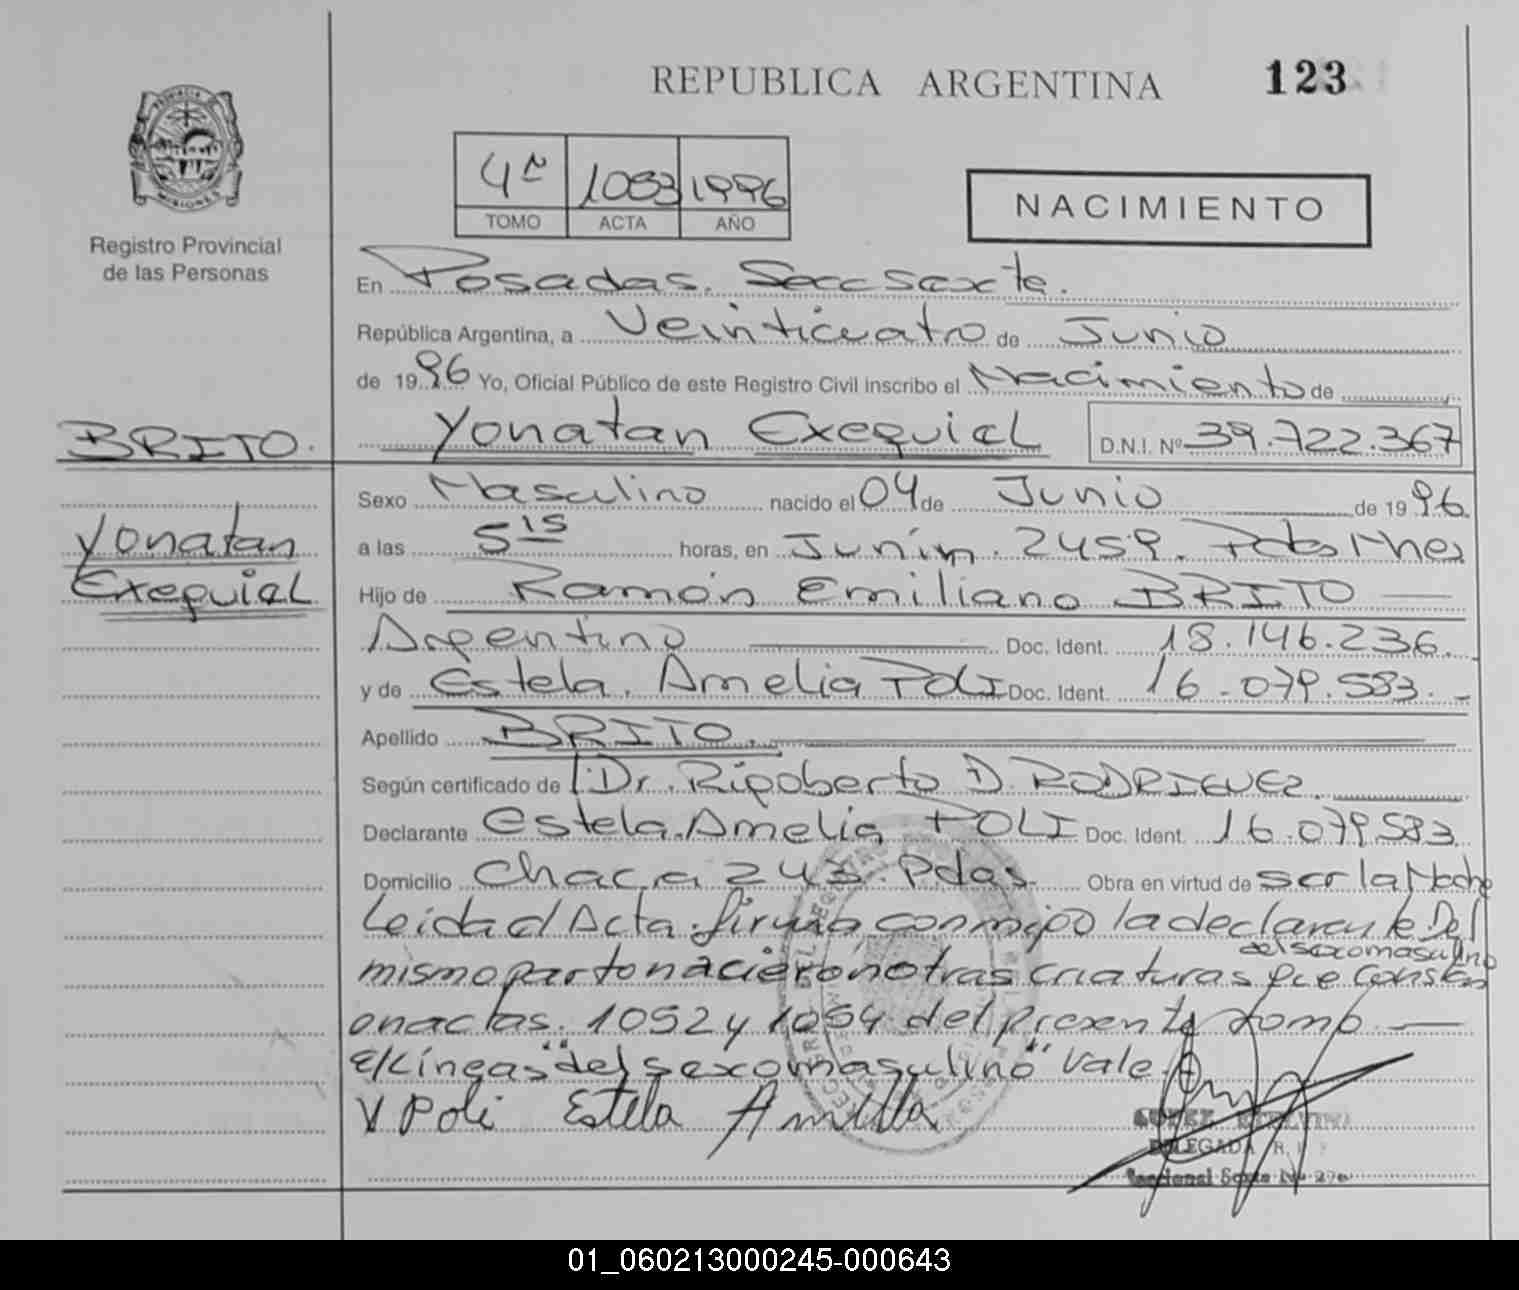 REPUBLICA ARGENTINA
123
PROVINCIA DE
MISIONES
Registro Provincial
de las Personas
4º 1053 1996
TOMO ACTA AÑO
NACIMIENTO
En Posadas. Secc sexta.
República Argentina, a Veinticuatro de Junio
de 1996 Yo, Oficial Público de este Registro Civil inscribo el Nacimiento de
BRITO.
Yonatan Exequiel D.N.I. Nº 39.722.367
Sexo Masculino nacido el 04 de Junio de 1996.
Yonatan
Exequiel
a las 5 15 horas, en Junín. 2459. Pdas Mnes
Hijo de Ramón Emiliano BRITO
Argentino Doc. Ident. 18.146.236.
y de Estela. Amelia POLI Doc. Ident. 16.079.583.-
Apellido BRITO.
Según certificado de l: Dr. Rigoberto D. RODRIGUEZ.
Declarante Estela. Amelia POLI Doc. Ident. 16.079.583
Domicilio Chacra 243. Pdas. Obra en virtud de ser la Madre
Leida el Acta. firma conmigo la declarante Del
del sexo masculino
mismo parto nacieron otras criaturas que constan
en actas. 1052 y 1054 del presente tomo.
E/Líneas "del sexo masculino" Vale.
Poli Estela Amelia
DELEGADA R.
Seccional Sexta
01_060213000245-000643